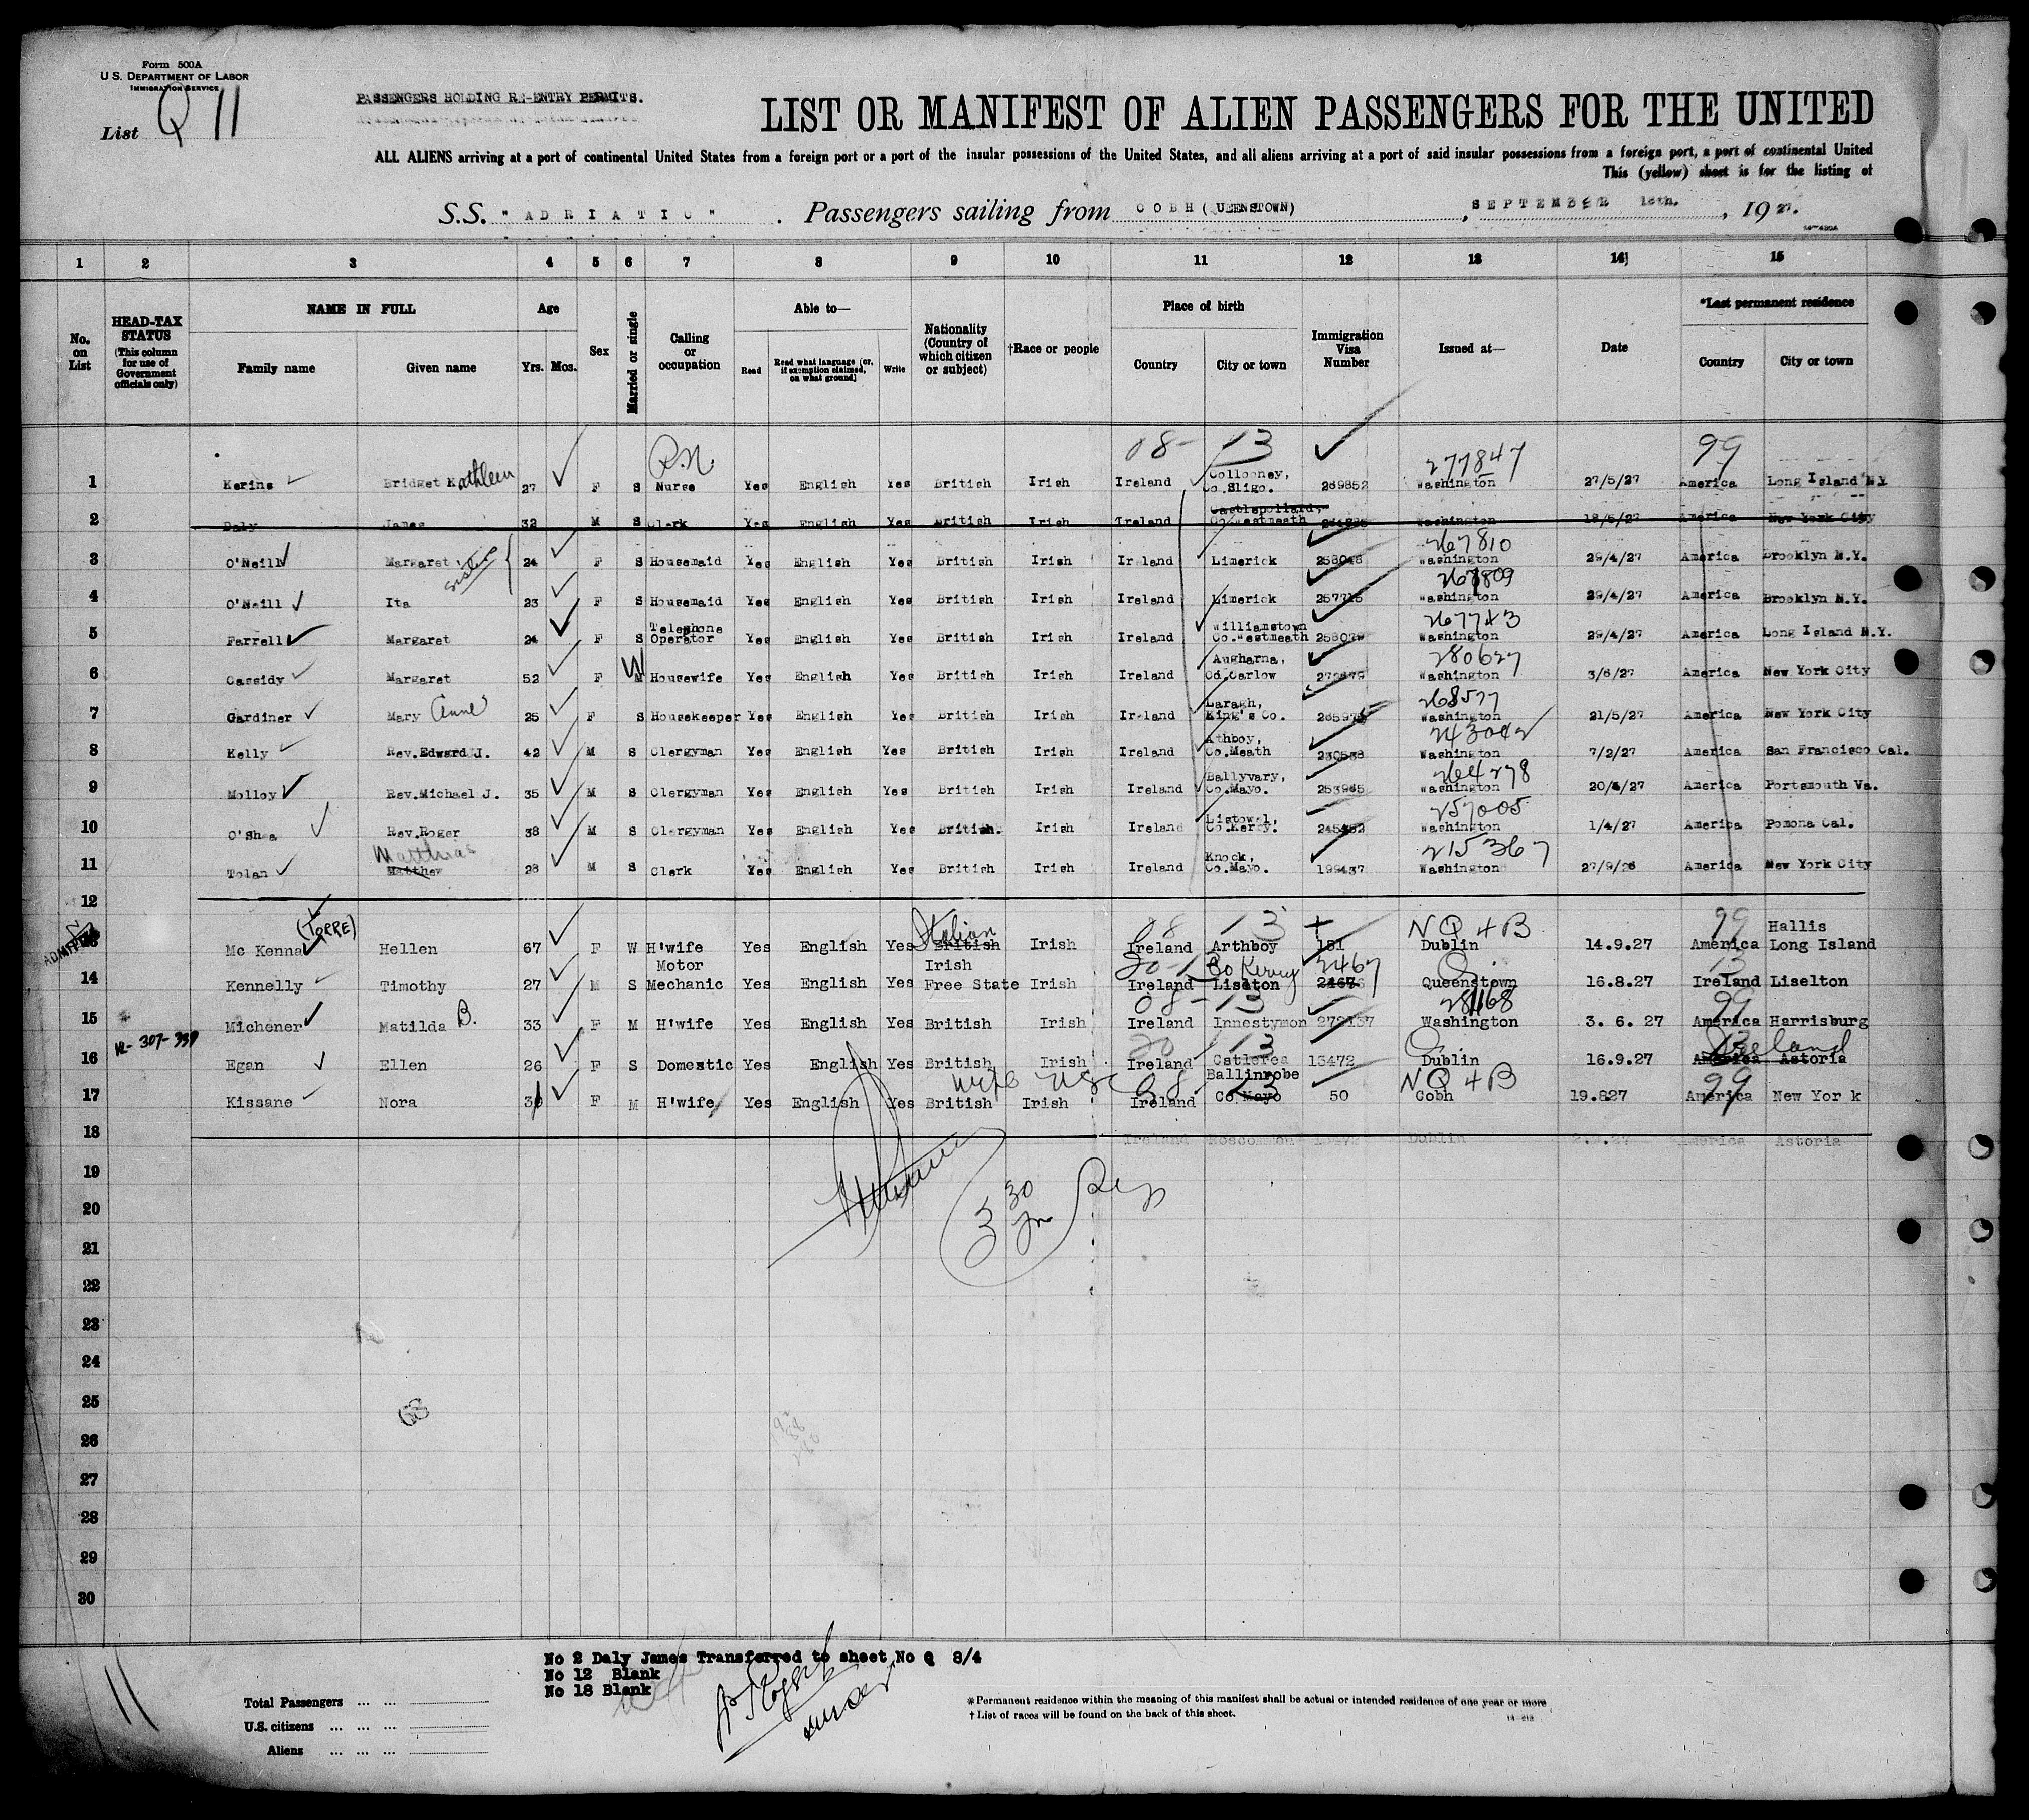 Form 500A
U.S. DEPARTMENT OF LABOR
IMMIGRATION SERVICE
List Q 11
PASSENGERS HOLDING RE-ENTRY PERMITS.
LIST OR MANIFEST OF ALIEN PASSENGERS FOR THE UNITED
ALL ALIENS arriving at a port of continental United States from a foreign port or a port of the insular possessions of the United States, and all aliens arriving at a port of said insular possessions from a foreign port, a port of continental United
This (yellow) sheet is for the listing of
S.S. "ADRIATIC". Passengers sailing from COBH (QUEENSTOWN), SEPTEMBER 18th., 1927.
1 2 3 4 5 6 7 8 9 10 11 12 13 14 15
No. on List
HEAD-TAX STATUS (This column for use of Government officials only)
NAME IN FULL
Family name Given name
Age
Yrs. Mos.
Sex
Married or single
Calling or occupation
Able to—
Read Read what language (or, if exemption claimed, on what ground) Write
Nationality (Country of which citizen or subject)
†Race or people
Place of birth
Country City or town
Immigration Visa Number
Issued at—
Date
*Last permanent residence
Country City or town
R.N. 08- 13 277847 99
1 Kerins Bridget Kathleen 27 F S Nurse Yes English Yes British Irish Ireland Collooney, Co.Sligo. 269852 Washington 27/5/27 America Long Island N.Y
2 Daly James 32 M S Clerk Yes English Yes British Irish Ireland Castlepollard, Co.Westmeath Washington 18/5/27 America New York City
267810
3 O'Neill Margaret sister 24 F S Housemaid Yes English Yes British Irish Ireland Limerick 258048 Washington 29/4/27 America Brooklyn N.Y.
267809
4 O'Neill Ita 23 F S Housemaid Yes English Yes British Irish Ireland Limerick 257715 Washington 29/4/27 America Brooklyn N.Y.
267743
5 Farrell Margaret 24 F S Telephone Operator Yes English Yes British Irish Ireland Williamstown Co.Westmeath Washington 29/4/27 America Long Island N.Y.
280627
6 Cassidy Margaret 52 F W Housewife Yes English Yes British Irish Ireland Augharna, Co.Carlow Washington 3/6/27 America New York City
268577
7 Gardiner Mary Anne 25 F S Housekeeper Yes English Yes British Irish Ireland Laragh, King's Co. Washington 21/5/27 America New York City
243042
8 Kelly Rev.Edward J. 42 M S Clergyman Yes English Yes British Irish Ireland Athboy, Co.Meath 230538 Washington 7/2/27 America San Francisco Cal.
264278
9 Molloy Rev.Michael J. 35 M S Clergyman Yes English Yes British Irish Ireland Ballyvary, Co.Mayo. 253965 Washington 20/4/27 America Portsmouth Va.
257005
10 O'Shea Rev.Roger 38 M S Clergyman Yes English Yes British. Irish Ireland Listowel, Co.Kerry. 245452 Washington 1/4/27 America Pomona Cal.
Matthias 215367
11 Tolan Matthew 28 M S Clerk Yes English Yes British Irish Ireland Knock, Co.Mayo. 199437 Washington 27/9/26 America New York City
12
(TORRE) Italian 08 13 NQ 4B 99 Hallis
ADMITTED
13 Mc Kenna Hellen 67 F W H'wife Yes English Yes British Irish Ireland Arthboy 151 Dublin 14.9.27 America Long Island
Motor Irish 20-13 Co Kerry 2467 13
14 Kennelly Timothy 27 M S Mechanic Yes English Yes Free State Irish Ireland Liselton 2467 Queenstown 16.8.27 Ireland Liselton
08-13 281168 99
15 Michener Matilda B. 33 F M H'wife Yes English Yes British Irish Ireland Innestymon 272137 Washington 3. 6. 27 America Harrisburg
20 13 Ireland
16 Egan Ellen 26 F S Domestic Yes English Yes British Irish Ireland Castlerea 13472 Dublin 16.9.27 America Astoria
wife USC 08- 13 Ballinrobe NQ 4B 99
17 Kissane Nora 30 F M H'wife Yes English Yes British Irish Ireland Co.Mayo 50 Cobh 19.827 America New Yor k
18 Ireland Roscommon 13472 Dublin America Astoria
19
20
3 30
21
22
23
24
25
26
27
28
29
30
No 2 Daly James Transferred to sheet No Q 8/4
No 12 Blank
No 18 Blank
11
Total Passengers ... ...
U.S. citizens ... ... ...
Aliens ... ... ...
*Permanent residence within the meaning of this manifest shall be actual or intended residence of one year or more
† List of races will be found on the back of this sheet.